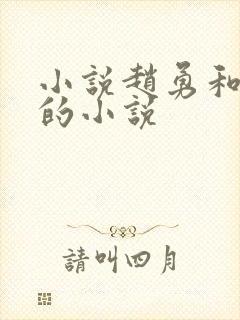 小説趙勇和
的小説
請叫四月